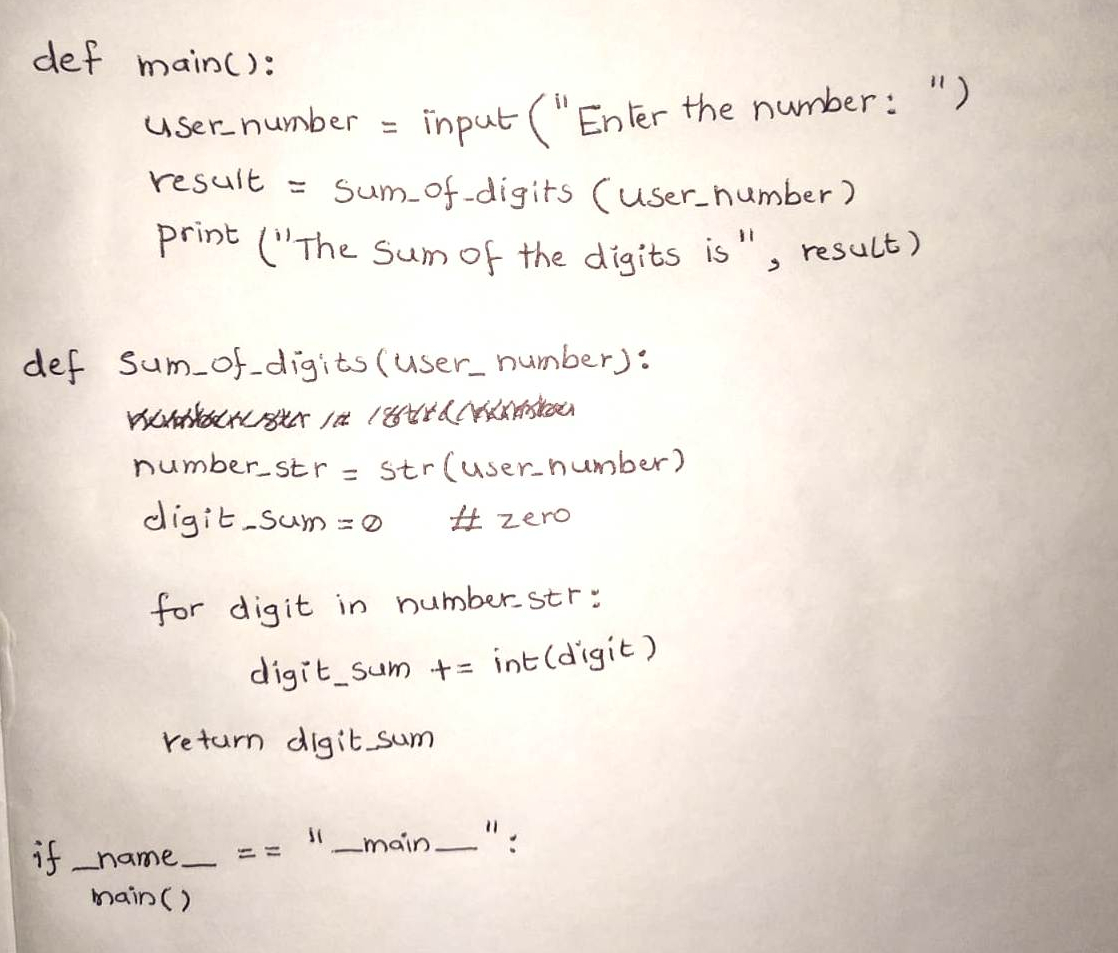 def main():
    user_number = input ("Enter the number: ")
    result = sum_of_digits (user_number)
    print ("The Sum of the digits is", result)
def sum_of_digits(user_number):
    number_str = str(user_number)
    digit_sum = 0    # zero
    for digit in number_str:
        digit_sum += int(digit)
    return digit_sum
if _name_ == "_main_":
    main()